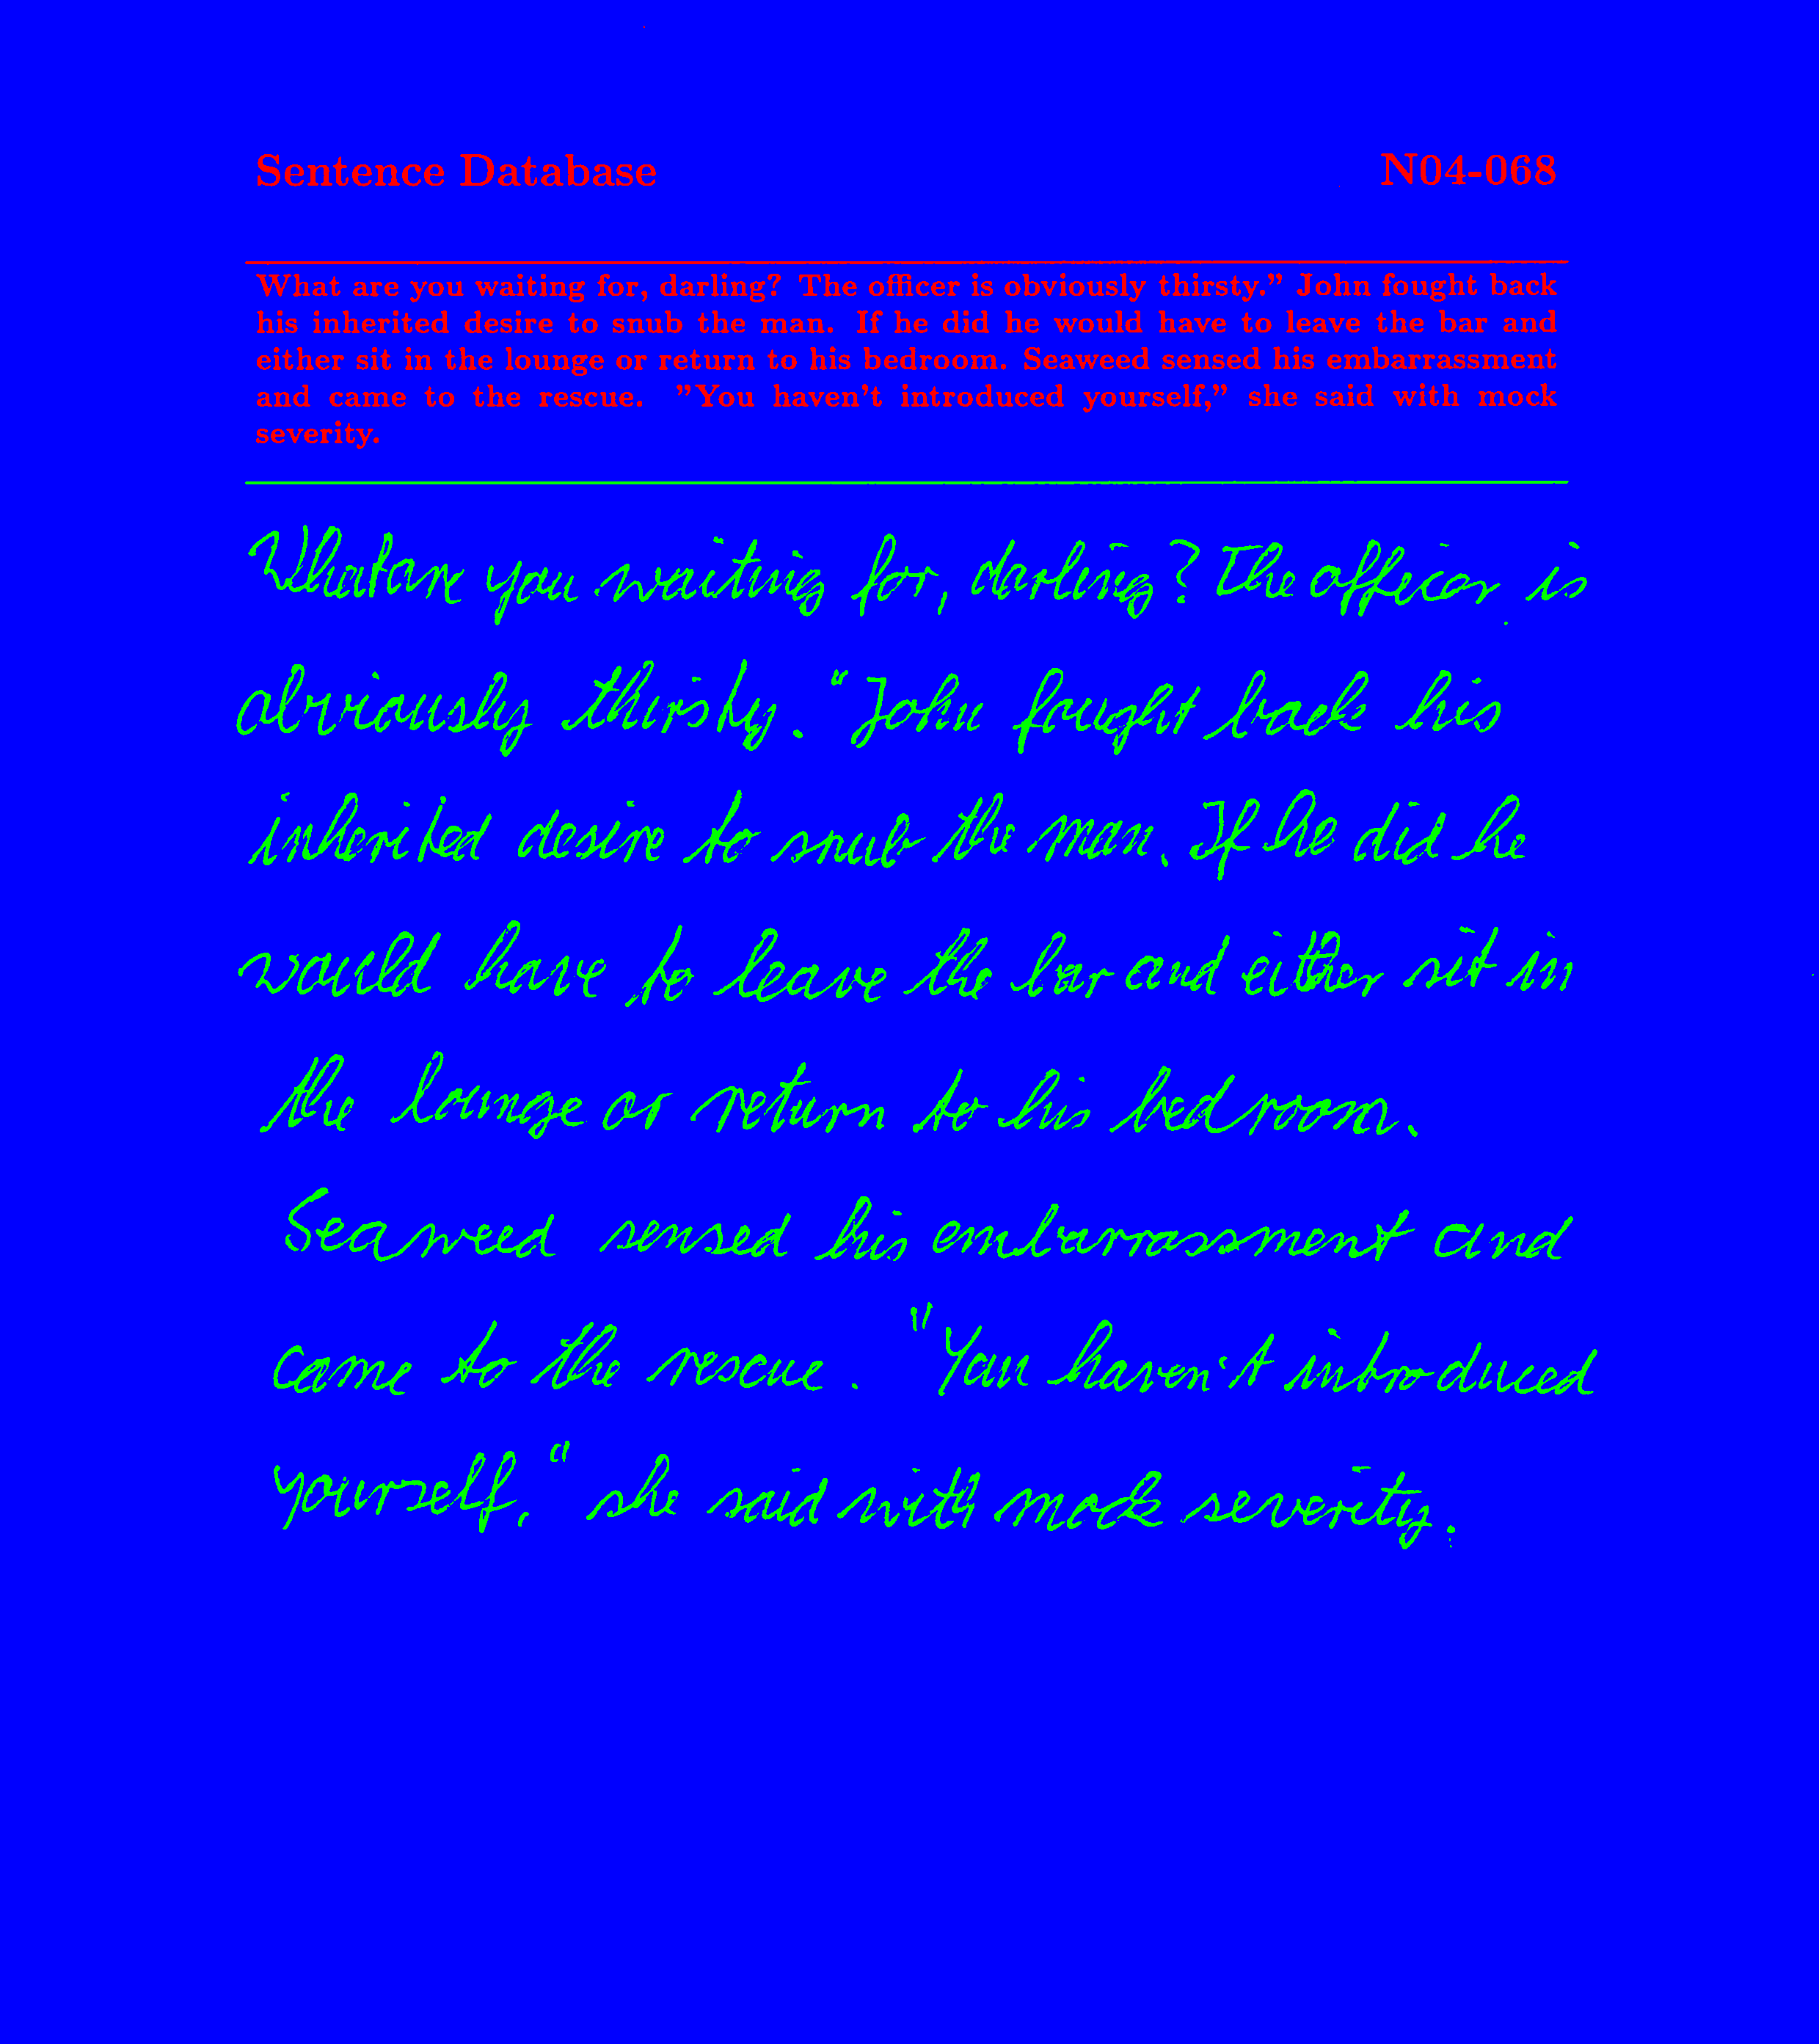 Sentence Database N04-068
What are you waiting for, darling? The officer is obviously thirsty.” John fought back
his inherited desire to snub the man. If he did he would have to leave the bar and
either sit in the lounge or return to his bedroom. Seaweed sensed his embarrassment
and came to the rescue. ”You haven't introduced yourself,” she said with mock
severity.
What are you waiting for, darling? The officer is
obviously thirsty. “John fought back his
inherited desire to snub the man. If he did he
would have to leave the bar and either sit in
the lounge or return to his bedroom.
Seaweed sensed his embarrassment and
came to the rescue. "You haven't introduced
yourself,“ she said with mock severity.